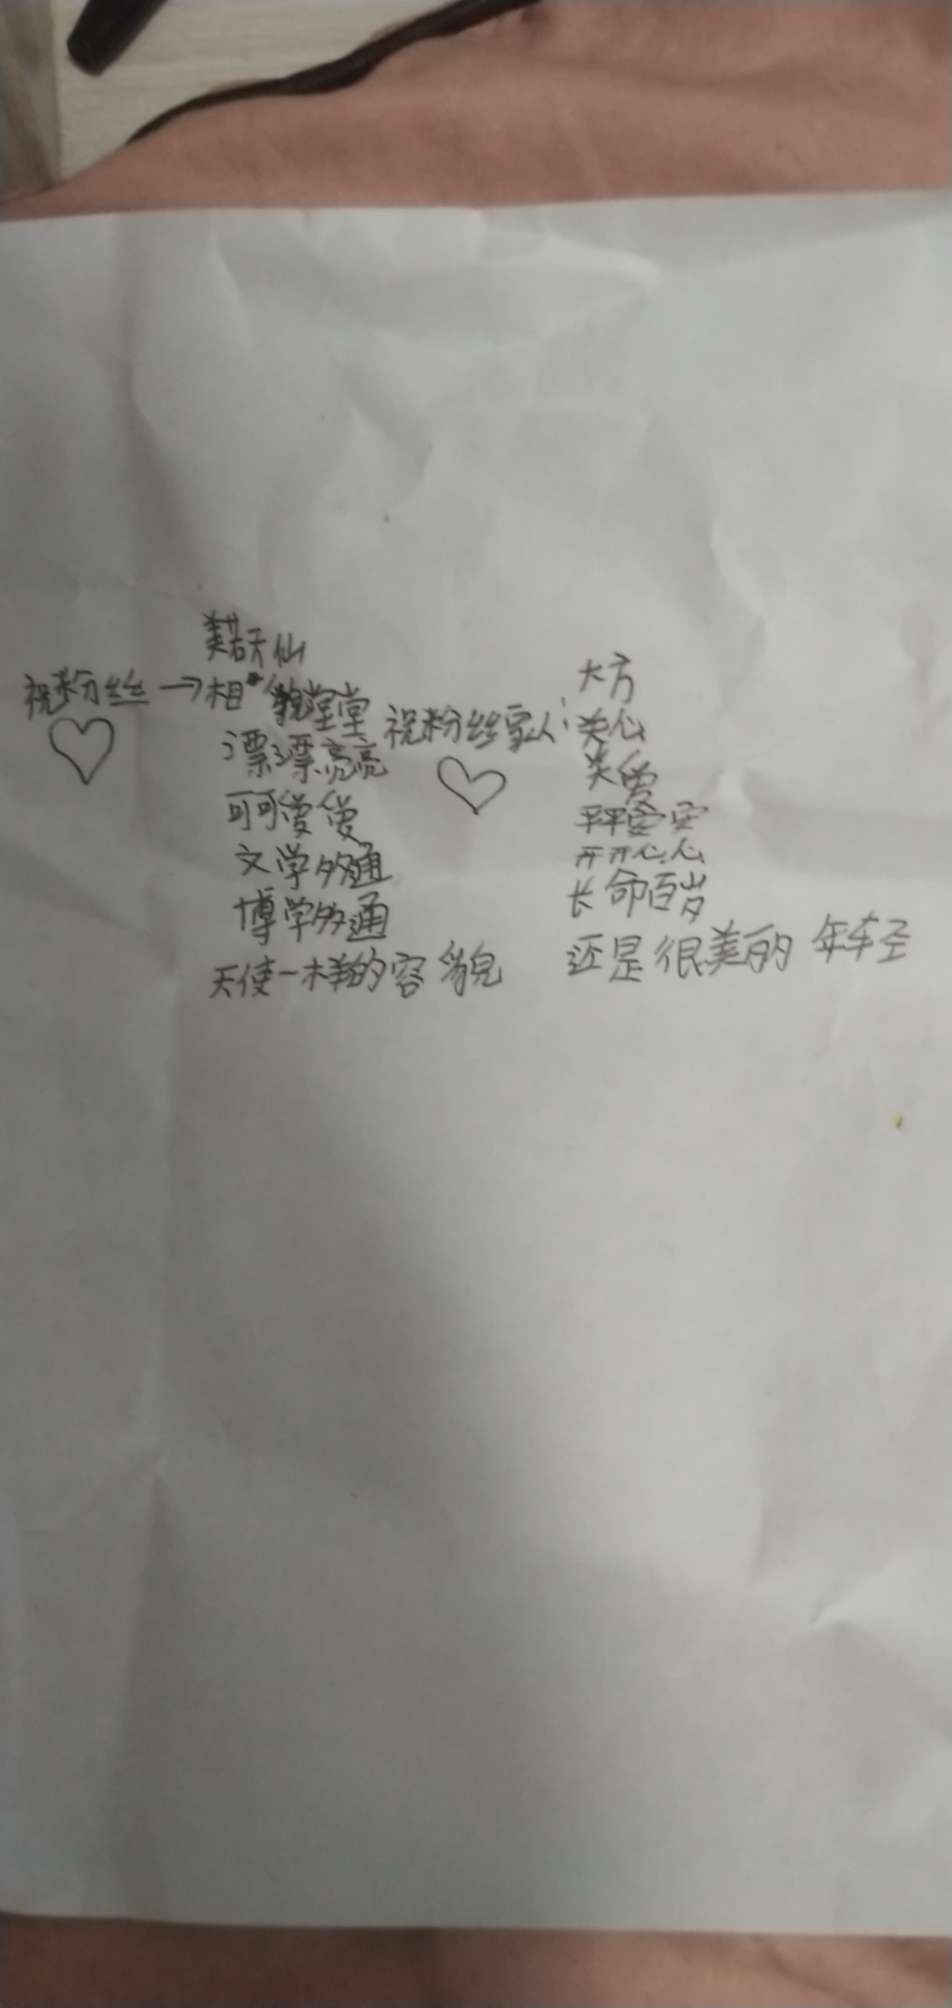 祝粉丝→
美若天仙
相貌堂堂
漂漂亮亮
可可爱爱
文学多通
博学多通
天使一样的容貌
祝粉丝家人:
大方
关心
关爱
平平安安
开开心心
长命百岁
还是很美的 年轻